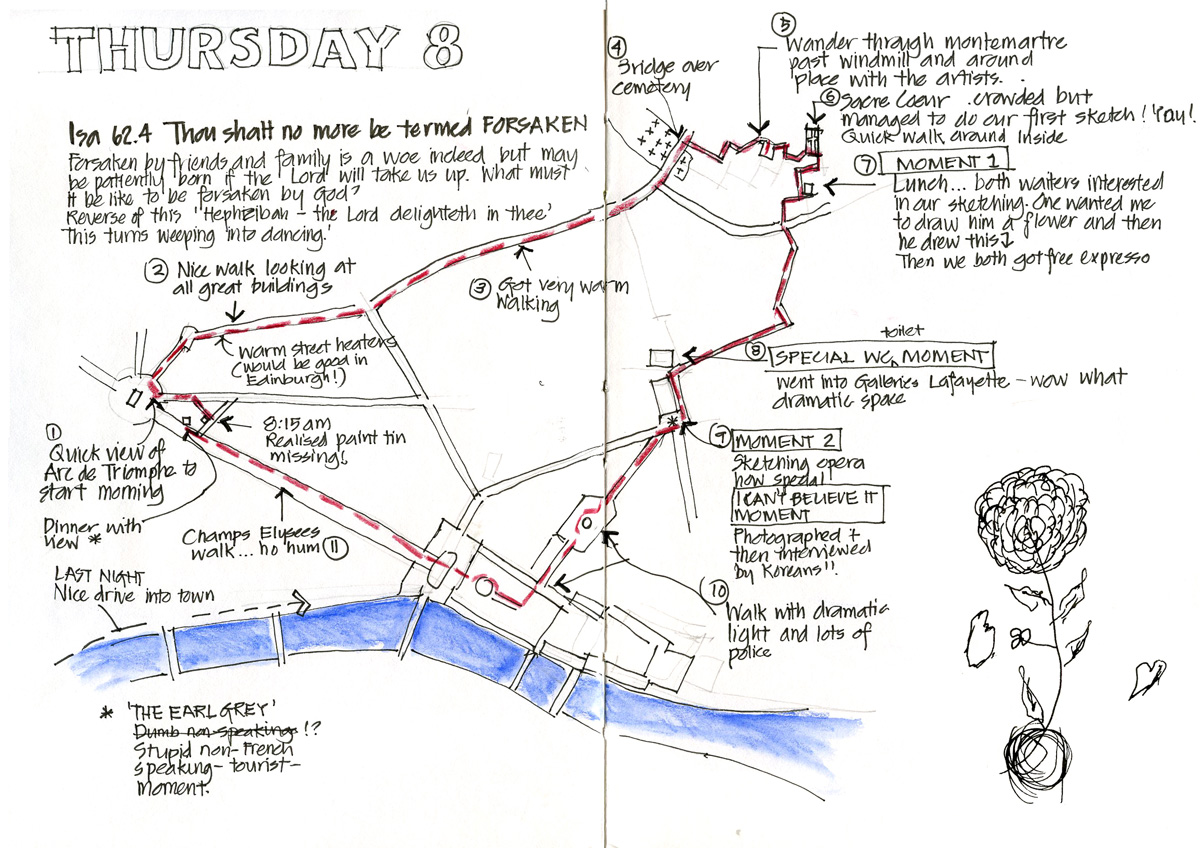 THURSDAY 8
Isa 62.4 Thou shalt no more be termed FORSAKEN
Forsaken by friends and family is a woe indeed but may
be patiently born if the Lord will take us up. What must
it be like to be forsaken by God?
Reverse of this "Hephzibah – the Lord delighteth in thee'
This turns weeping into dancing.'
② Nice walk looking at
all great buildings
Warm street heaters
(would be good in
Edinburgh!)
③ Got very warm
walking
④
Bridge over
cemetery
⑤
Wander through montemartre
past windmill and around
place with the artists. .
⑥ Sacre Coeur . crowded but
managed to do our first sketch! 'Yay!'
Quick walk around inside
⑦ MOMENT 1
Lunch... both waiters interested
in our sketching. One wanted me
to draw him a flower and then
he drew this↓
Then we both got free expresso
toilet
⑧ SPECIAL WC MOMENT
went into Galleries Lafayette – wow what
dramatic space
⑨ MOMENT 2
Sketching opera
how special
I CAN'T BELIEVE IT
MOMENT
Photographed +
then interviewed
by Koreans!!
⑩
Walk with dramatic
light and lots of
police
8:15 am
Realised paint tin
missing!
①
Quick view of
Arc de Triomphe to
start morning
Dinner with
new *
Champs Elysees
walk... ho hum ⑪
LAST NIGHT
Nice drive into town
* 'THE EARL GREY'
Dumb non-speaking !?
Stupid non-French
speaking-tourist-
moment.
*